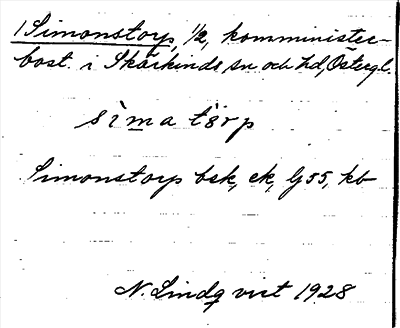 1 Simonstorp, 1/2, komminister-
bost. i Skärkinds sn och hd, Östergl.
sìma tɔ̀rp
Simonstorp bsk, ek, G 55, kb
N. Lindqvist 1928